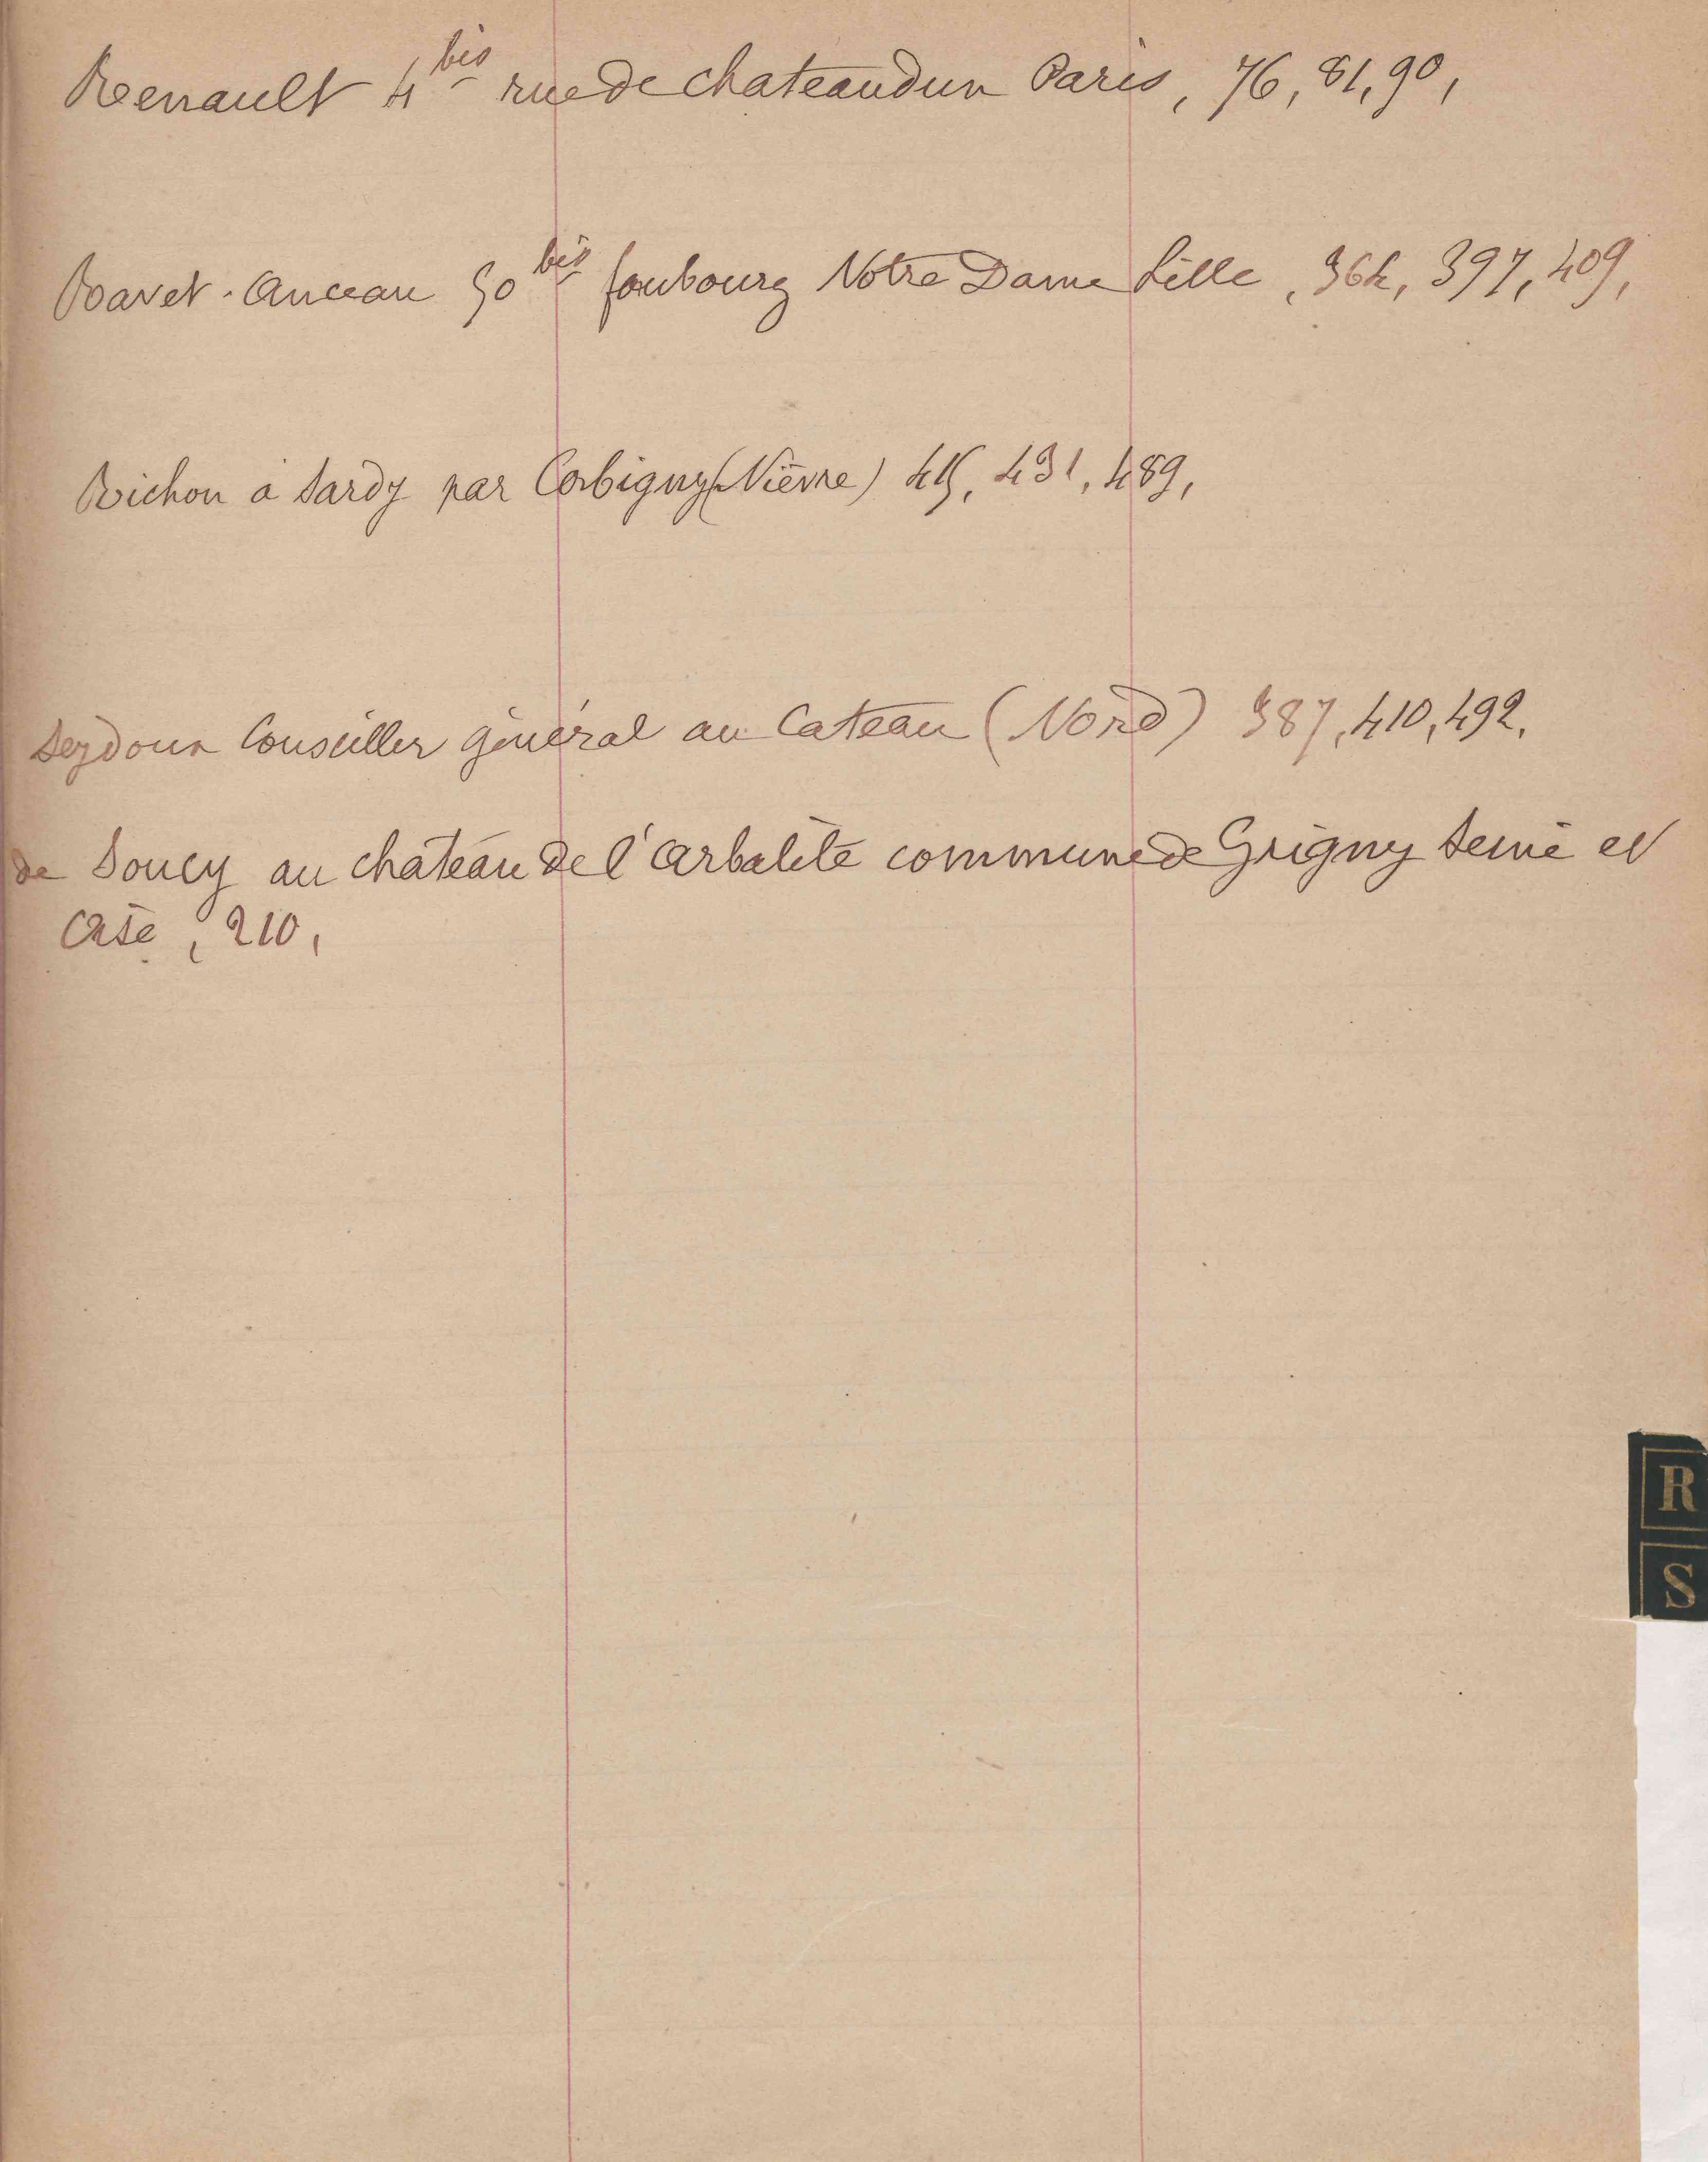 Renault 4 bis rue de chateaudun Paris, 76, 81, 90,
Ravet-Anceau 50 bis foubourg Notre Dame Lille, 364, 397, 409,
Richon a Sardy par Corbigny (Nièvre) 415, 431, 489,
Seydoux Conseiller général au Cateau (Nord) 387, 410, 492.
de Soucy au château de l'arbalète commune de Grigny Seine et
Oise, 210,
R
S